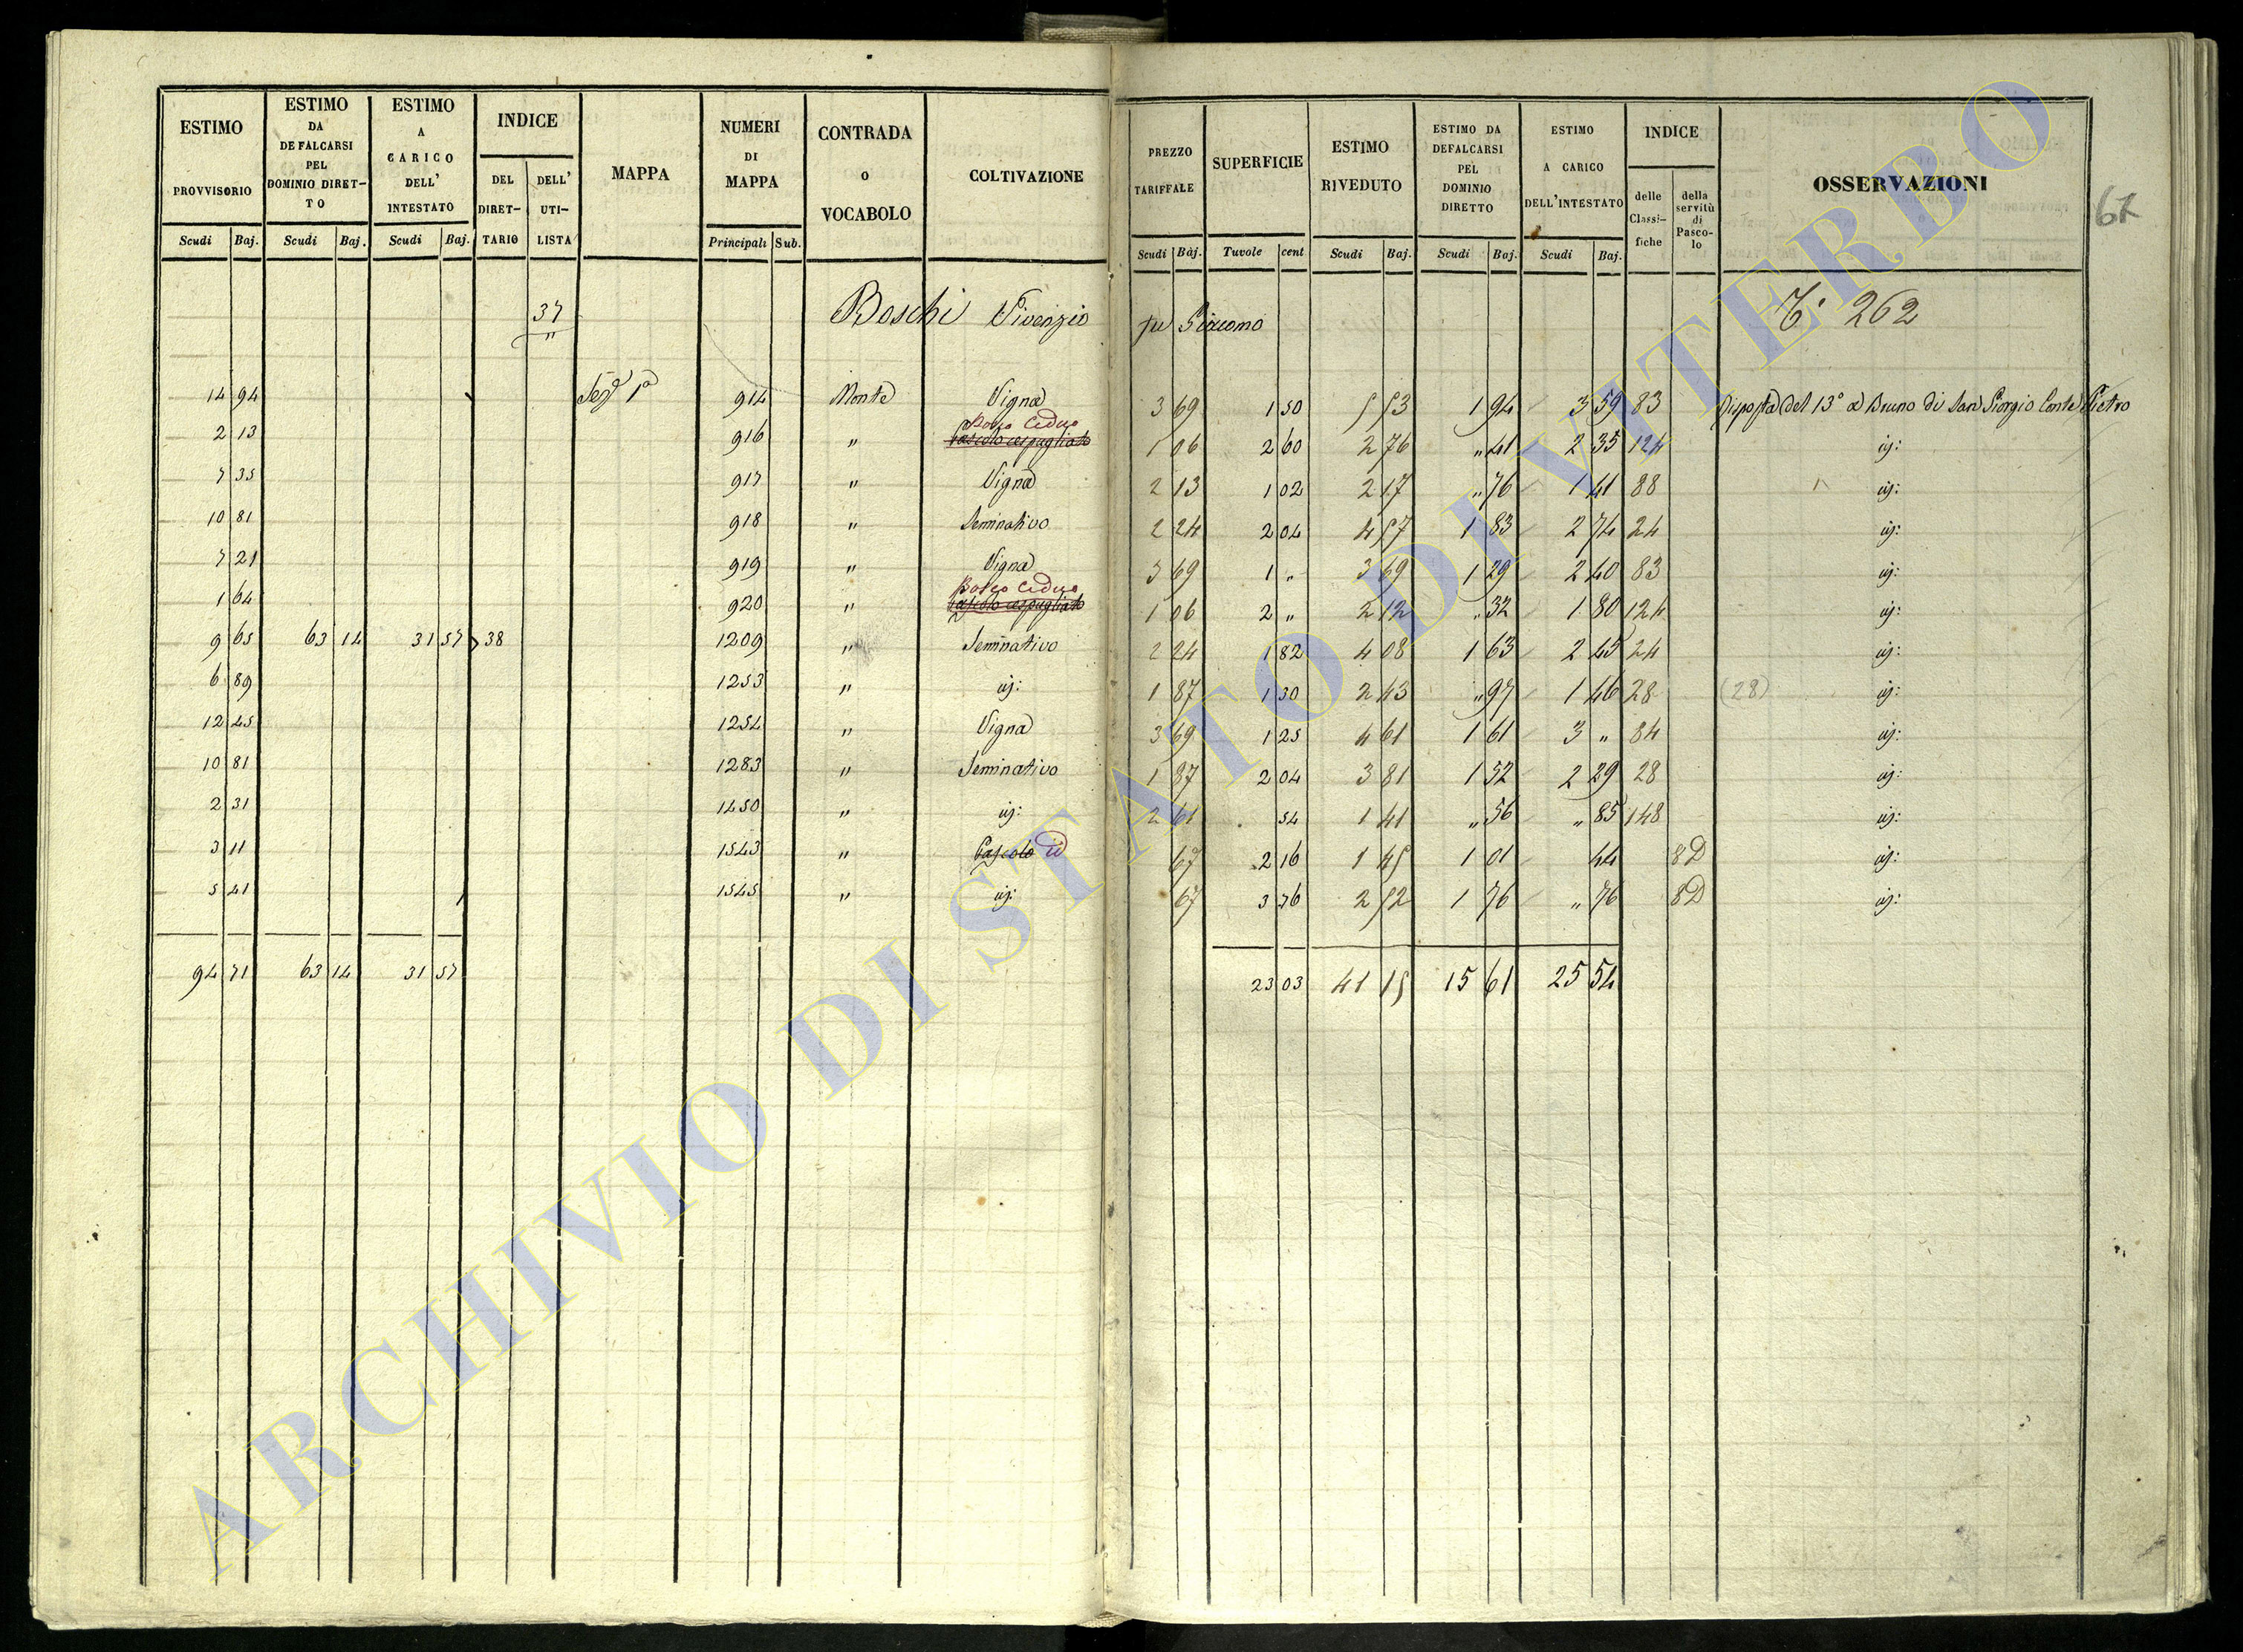 ESTIMO PROVVISORIO Scudi Baj.
ESTIMO DA DEFALCARSI PEL DOMINIO DIRET-TO Scudi Baj.
ESTIMO A CARICO DELL' INTESTATO Scudi Baj.
INDICE DEL DIRET-TARIO DELL' UTI-LISTA
MAPPA
NUMERI DI MAPPA Principali Sub.
CONTRADA O VOCABOLO
COLTIVAZIONE
PREZZO TARIFFALE Scudi Baj.
SUPERFICIE Tavole cent
ESTIMO RIVEDUTO Scudi Baj.
ESTIMO DA DEFALCARSI PEL DOMINIO DIRETTO Scudi Baj.
ESTIMO A CARICO DELL'INTESTATO Scudi Baj.
INDICE delle Classi-fiche della servitù di Pasco-lo
OSSERVAZIONI
67
37 " Boschi Vivenzio fu Giacomo 262
14 94 Sez 1a 914 Monte Vigna 3 69 1 50 5 53 1 94 3 59 83 Risposta del 13° a Bruno di San Giorgio Conte Pietro
Bosco Ceduo
2 13 916 " Pascolo cespugliato 1 06 2 60 2 76 " 41 2 35 124 id:
7 35 917 " Vigna 2 13 1 02 2 17 " 76 1 41 88 id:
10 81 918 " Seminativo 2 24 2 04 4 57 1 83 2 74 24 id:
7 21 919 " Vigna 3 69 1 " 3 69 1 29 2 40 83 id:
Bosco Ceduo
1 64 920 " Pascolo cespugliato 1 06 2 " 2 12 " 32 1 80 124 id:
9 65 63 14 31 57 38 1209 " Seminativo 2 24 1 82 4 08 1 63 2 45 24 id:
6 89 1253 " id: 1 87 1 30 2 43 " 97 1 46 28 (28) id:
12 45 1254 " Vigna 3 69 1 25 4 61 1 61 3 " 84 id:
10 81 1283 " Seminativo 1 87 2 04 3 81 1 52 2 29 28 id:
2 31 1450 " id: 2 61 54 1 41 " 56 " 85 148 id:
3 11 1543 " Pascolo id 67 2 16 1 45 1 01 44 8D id:
5 41 1545 " id: 67 3 76 2 52 1 76 " 76 8D id:
94 71 63 14 31 57 23 03 41 15 15 61 25 54
ARCHIVIO DI STATO DI VITERBO